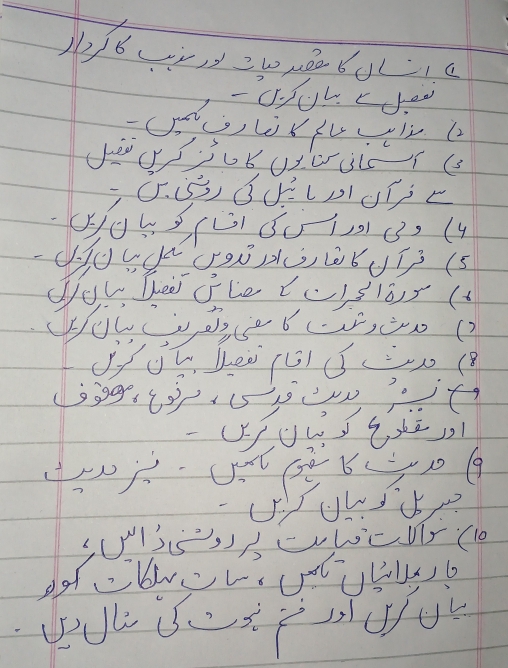 1) انسان کا مقصد حیات اور مذہب کا کردار
تفصیل سے بیان کریں -
2) مذاہب عالم کا تعارف لکھیں -
3) آسمانی کتابوں کا جائزہ کریں تفصیل
سے قرآن اور بائیبل کی روشنی میں -
4) وحی اور اس کی اقسام کو بیان کریں -
5) قرآن کا تعارف اور تدوین مکمل بیان کریں -
6) سورۃ الحجرات کا مضامین تفصیلاً بیان کریں
7) حدیث و سنت کا معنی و تعریف بیان کریں -
8) حدیث کی اقسام تفصیلاً بیان کریں -
نیز حدیث قدسی ، مرفوع ، موقوف
اور مقطوع کو بیان کریں -
9) حدیث کا مفہوم لکھیں - نیز حدیث
جبریل کو بیان کریں -
10) سوالات قیامت پر روشنی ڈالیں ،
چار بھلائیاں لکھیں ، سات مہلکات کو
بیان کریں اور ختم نبوت کی مثال دیں -